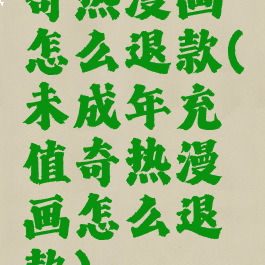 奇热漫画
怎么退款(
未成年充
值奇热漫
画怎么退
款)